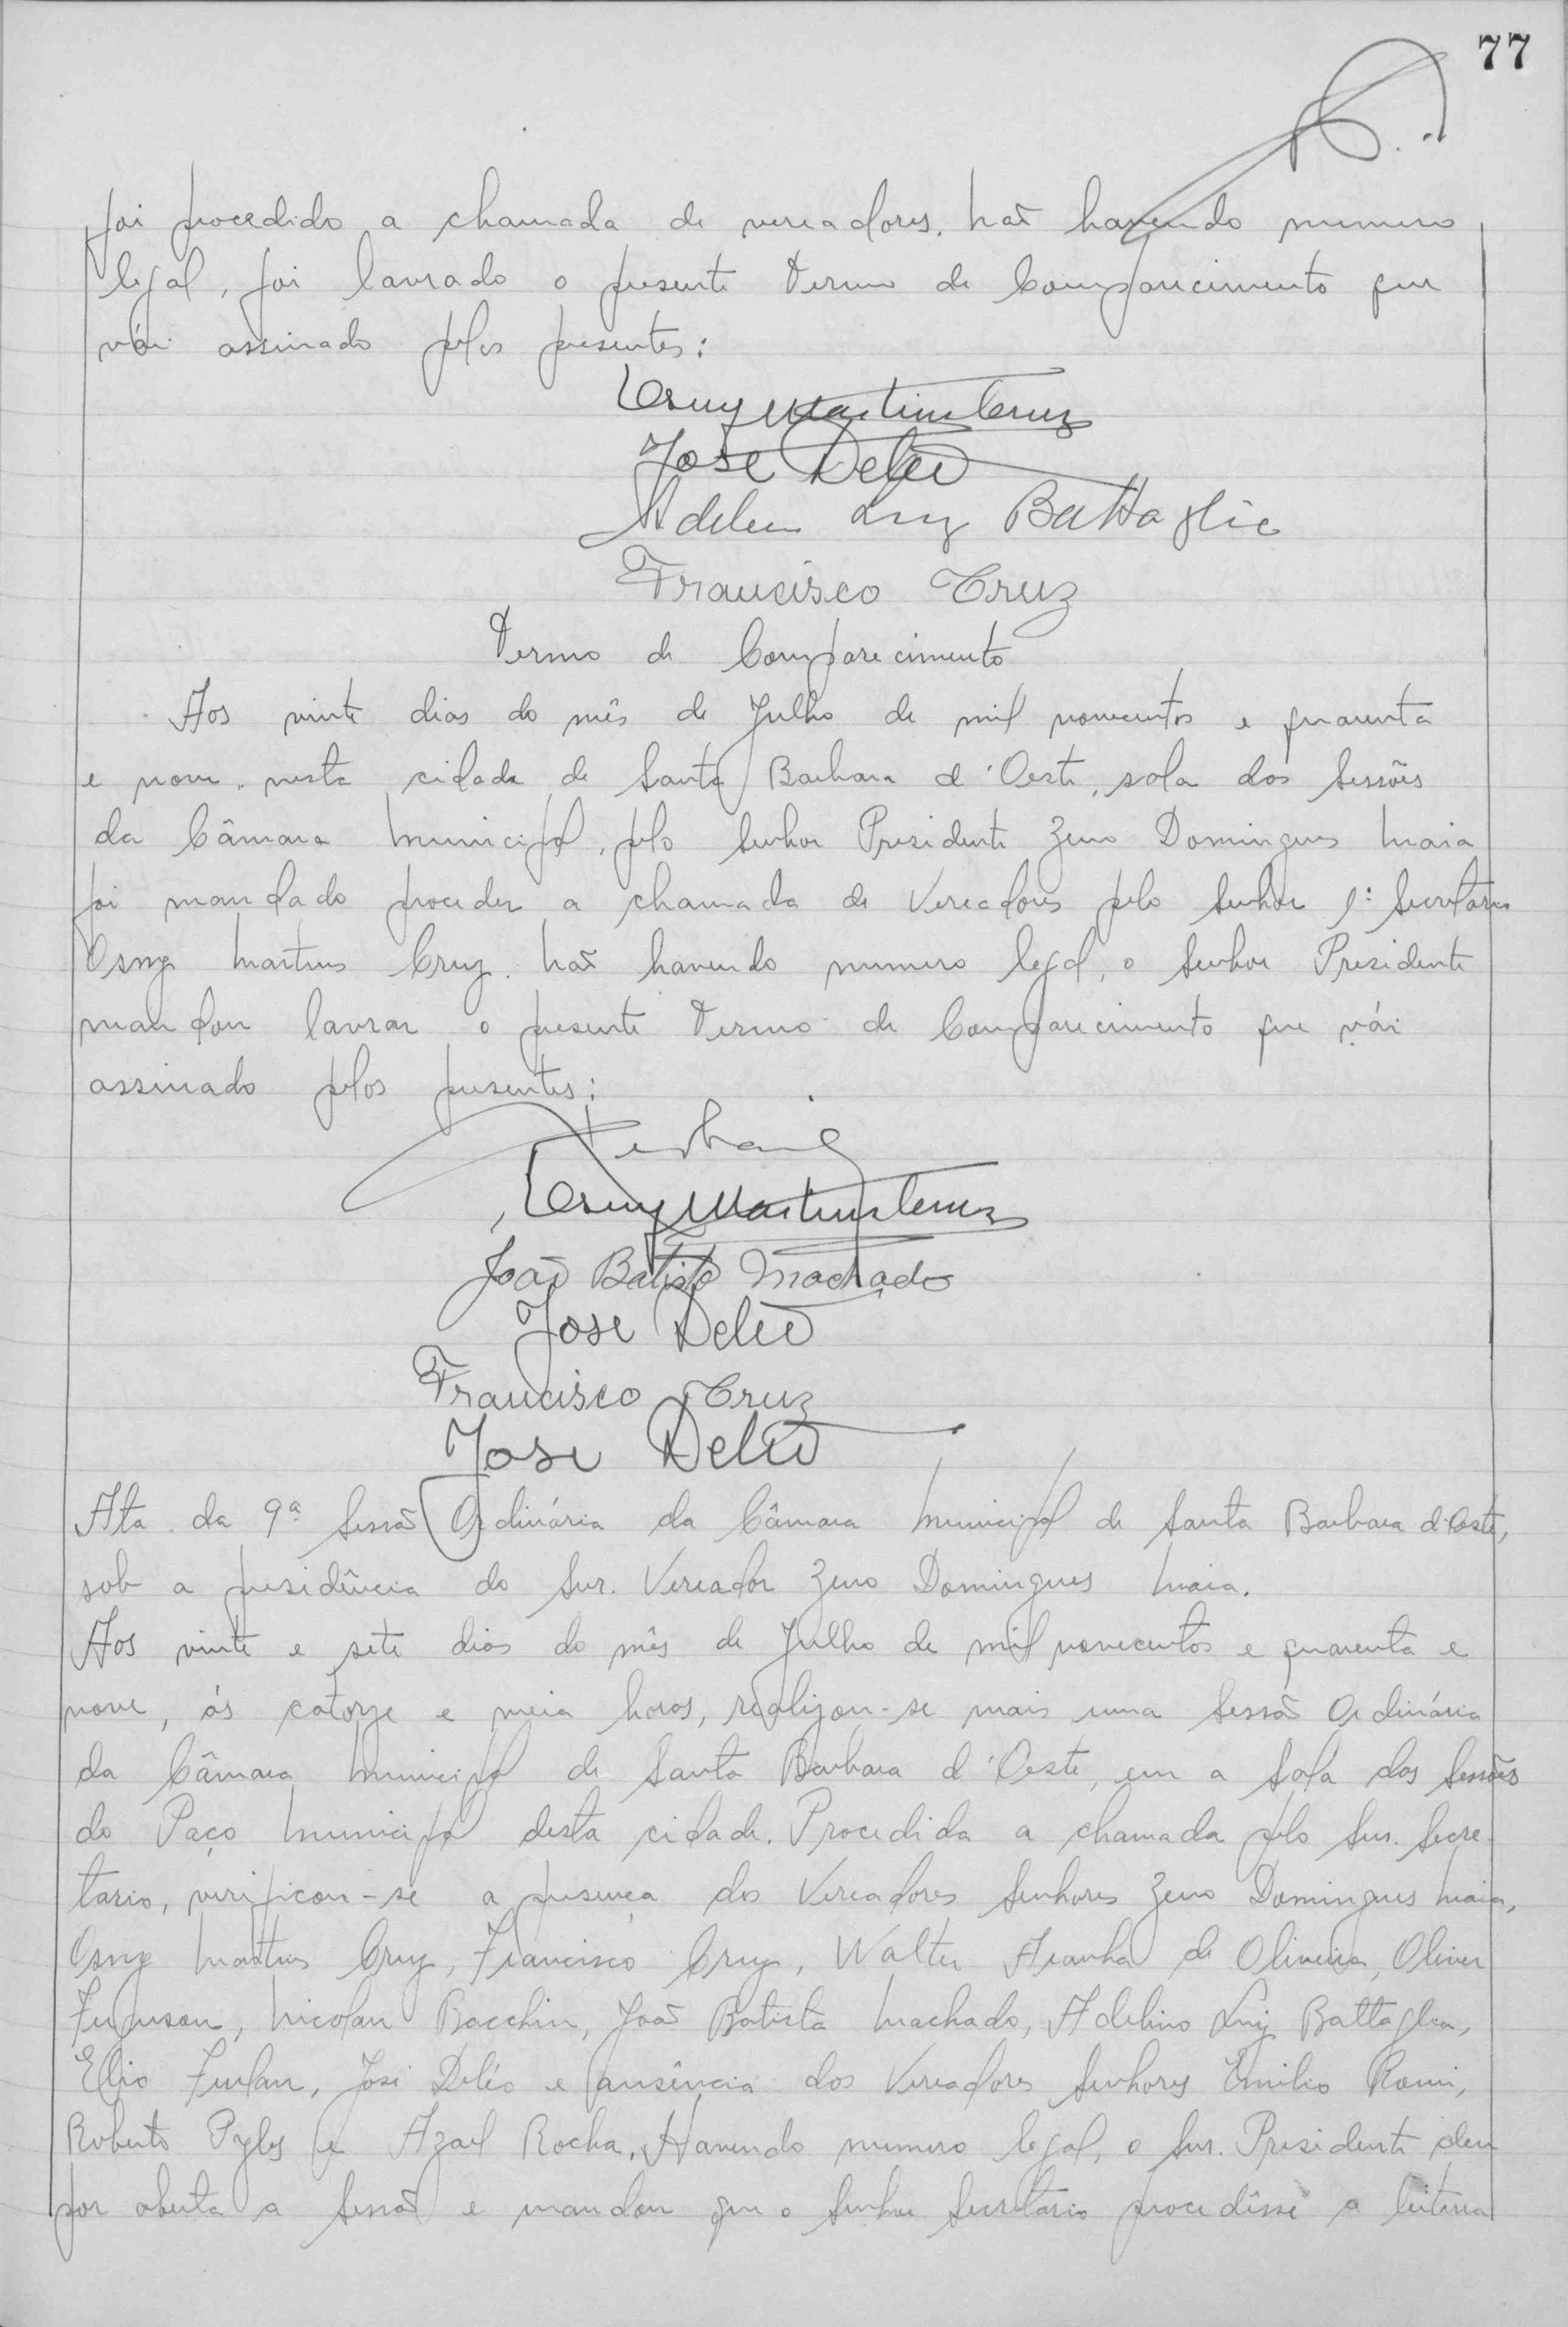 77
foi procedido a chamada de vereadores. Não havendo numero
legal, foi lavrado o presente Termo de Comparecimento que
vái assinado pelos presentes:
Osny Martins Cruz
José Deléo
Adelino Luiz Battaglia
Francisco Cruz
Termo de Comparecimento
Aos vinte dias do mês de Julho de mil novecentos e quarenta
e nove, nesta cidade de Santa Barbara d'Oeste, sala das Sessões
da Câmara Municipal, pelo Senhor Presidente Zeno Domingues Maia
foi mandado proceder a chamada de Vereadores pelo Senhor 1º Secretário
Osny Martins Cruz. Não havendo numero legal, o Senhor Presidente
mandou lavrar o presente Termo de Comparecimento que vái
assinado pelos presentes:
Osny Martins Cruz
João Batista Machado
José Deléo
Francisco Cruz
José Deléo
Ata da 9ª Sessão Ordinária da Câmara Municipal de Santa Barbara d'Oeste,
sob a presidência do Snr. Vereador Zeno Domingues Maia.
Aos vinte e sete dias do mês de Julho de mil novecentos e quarenta e
nove, ás catorze e meia horas, realizou-se mais uma Sessão Ordinária
da Câmara Municipal de Santa Barbara d'Oeste, em a Sala das Sessões
do Paço Municipal desta cidade. Procedida a chamada pelo Snr. Secre-
tario, verificou-se a presença dos Vereadores Senhores Zeno Domingues Maia,
Osny Martins Cruz, Francisco Cruz, Walter Aranha de Oliveira, Oliver
Ferguson, Nicolau Bacchin, João Batista Machado, Adelino Luiz Battaglia,
Elio Furlan, José Deléo e ausência dos Vereadores Senhores Emilio Romi,
Roberto Pyles e Azael Rocha. Havendo numero legal, o Snr. Presidente deu
por aberta a Sessão e mandou que o Senhor Secretário procedêsse a leitura